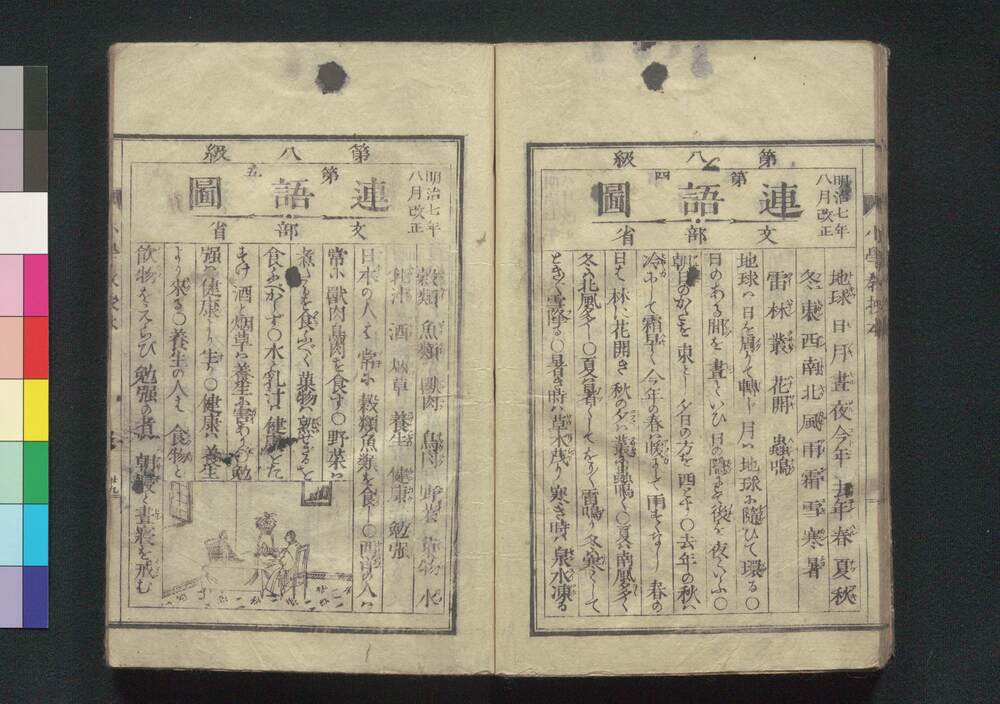 第八級
第四
連語圖
明治七年
八月改正
文部省
地球 日 月 晝 夜 今年 去年 春 夏 秋
冬 東 西 南 北 風 雨 霜 雪 寒 暑
雷 林 叢 花開 蟲鳴
地球ハ日を周りて轉し月ハ地球に隨ひて環る〇
日のある間を晝といひ日の
後を夜といふ〇
朝日のかたを東とし夕日の方を西とす〇去年の秋ハ
冷にして霜早く今年の春ハ暖にして雨すくなし春の
日は林に花開き秋の夕ハ叢に蟲鳴く〇夏ハ南風多く
冬ハ北風多し〇夏ハ暑くしてをりをり雷鳴り冬ハ寒くして
ときどき雪降る〇暑き時ハ草木茂り寒き時ハ泉水凍る
第八級
第五
連語圖
明治七年
八月改正
文部省
穀類 魚類 獸肉 鳥肉 野菜 菓物 水
乳汁 酒 烟草 養生 健康 勉强
日本の人は常に穀類魚類を食し〇西洋の人ハ
常に獸肉鳥肉を食す〇野菜ハ
煮たるを食ふべく菓物ハ熟せざるを
食ふべからず〇水と乳汁ハ健康をた
すけ酒と烟草ハ養生に害あり〇勉
强ハ健康より生し〇健康ハ養生
より來る〇養生の人は食物と
飲物をえらび勉强の者ハ朝寢と晝寢を戒む